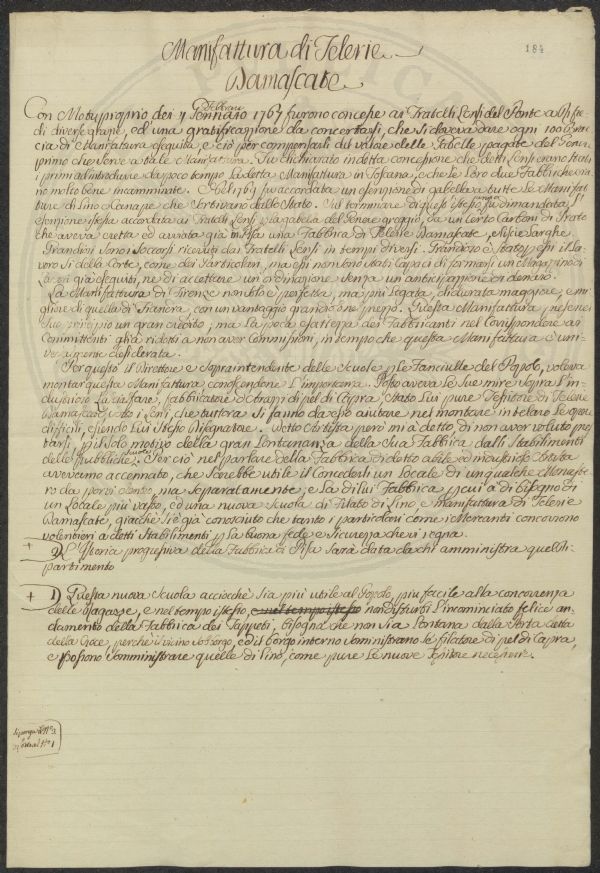 184
Manifattura di Telerie
Damascate
Con Motuproprio dei 4 Febbraro Gennaro 1767 furono concesse ai Fratelli Lensi del Ponte a
di diverse grazie, ed una gratificazione da concertarsi, che si doveva dare ogni 100
cia di Manifattura eseguita, e ciò per compensarli del valore delle Gabelle pagate del Genere
primo che serve a tale Manifattura. Fu dichiarato in detta concessione che detti Lensi erano stati
i primi ad introdurre da poco tempo la detta Manifattura in Toscana, e che le loro due Fabbriche
no molto bene incamminate. Nel 1769 fu accordata un esenzione di gabella a tutte le Manifat
ture di Lino e Canape che sortivano dallo Stato. Sul terminare di quest'istesso anno fu dimandata l'
esenzione istessa accordata ai Fratelli Lensi p la gabella del Genere greggio, da un certo Cartoni di Prato
che aveva eretta ed avviata già in Pisa una Fabbrica di Telerie Damascate, Mesie Sarghe.
Grandiosi sono i Soccorsi ricevuti dai Fratelli Lensi in tempi diversi. Grandioso è stato chi il la-
voro sì della Corte, come dei Particolari, ma essi non sono stati capaci di formarsi un Magazzino di
Lavori già eseguiti, ne di accettare un ordinazione senza un anticipazione di denaro.
La Manifattura di Firenze non solo è perfetta, ma più legata, di durata maggiore, e mi
gliore di quella di Fiandra, con un vantaggio grandioso nel prezzo. Questa Manifattura prese nel
suo principio un gran credito, ma la poca esattezza dei Fabbricanti nel corrispondere ai
Committenti gli à ridotti a non aver Commissioni, in tempo che questa Manifattura è uni-
versalmente desiderata.
Per questo il Direttore e Sopraintendente delle Scuole p le Fanciulle del Popolo, voleva
montar questa Manifattura, conoscendone l'importanza. Posto aveva le sue mire sopra l'in-
dustrioso fabbricatore di di pel di Capra, stato lui pure Tessitore di Telerie
Damascate, sotto i Lensi, che tuttora si fanno da esso aiutare nel montare in telaro le opere
difficili, essendo lui stesso Disegnatore. Detto Artista però mi à detto di non aver voluto pre
starsi, p il solo motivo della gran lontananza della sua Fabbrica dalli Stabilimenti
delle pubbliche Scuole. Per ciò nel parlare della Fabbrica di detto abile ed industrioso Artista
avevamo accennato, che sarebbe utile il concederli un Locale di un qualche Monaste-
ro da porvi dentro, ma separatamente, e la di lui Fabbrica, p cui à di bisogno di
un Locale più vasto, ed una nuova Scuola di Filato di Lino, e manifattura di Telerie
Damascate, giacchè si è già conosciuto che tanto i particolari come i Mercanti concorrono
volentieri a detti Stabilimenti p la buona fede e sicurezza che vi regna.
+ 2) L'Istoria progressiva della Fabbrica di Pisa sarà data da chi amministra quel Di-
partimento
+ 1) Questa nuova Scuola acciocchè sia più utile al Popolo, più facile alla concorrenza
delle Ragazze, e nel tempo istesso, e nel tempo istesso non disturbi l'incaminciato felice an-
damento della Fabbrica dei Tappeti, bisogna che non sia lontana dalla Porta detta
della Croce, perchè il vicino sobborgo, ed il borgo interno somministrano le filatore di pel di Capra,
e possono somministrare quelle di Lino, come pure le nuove Tessitore necessarie.